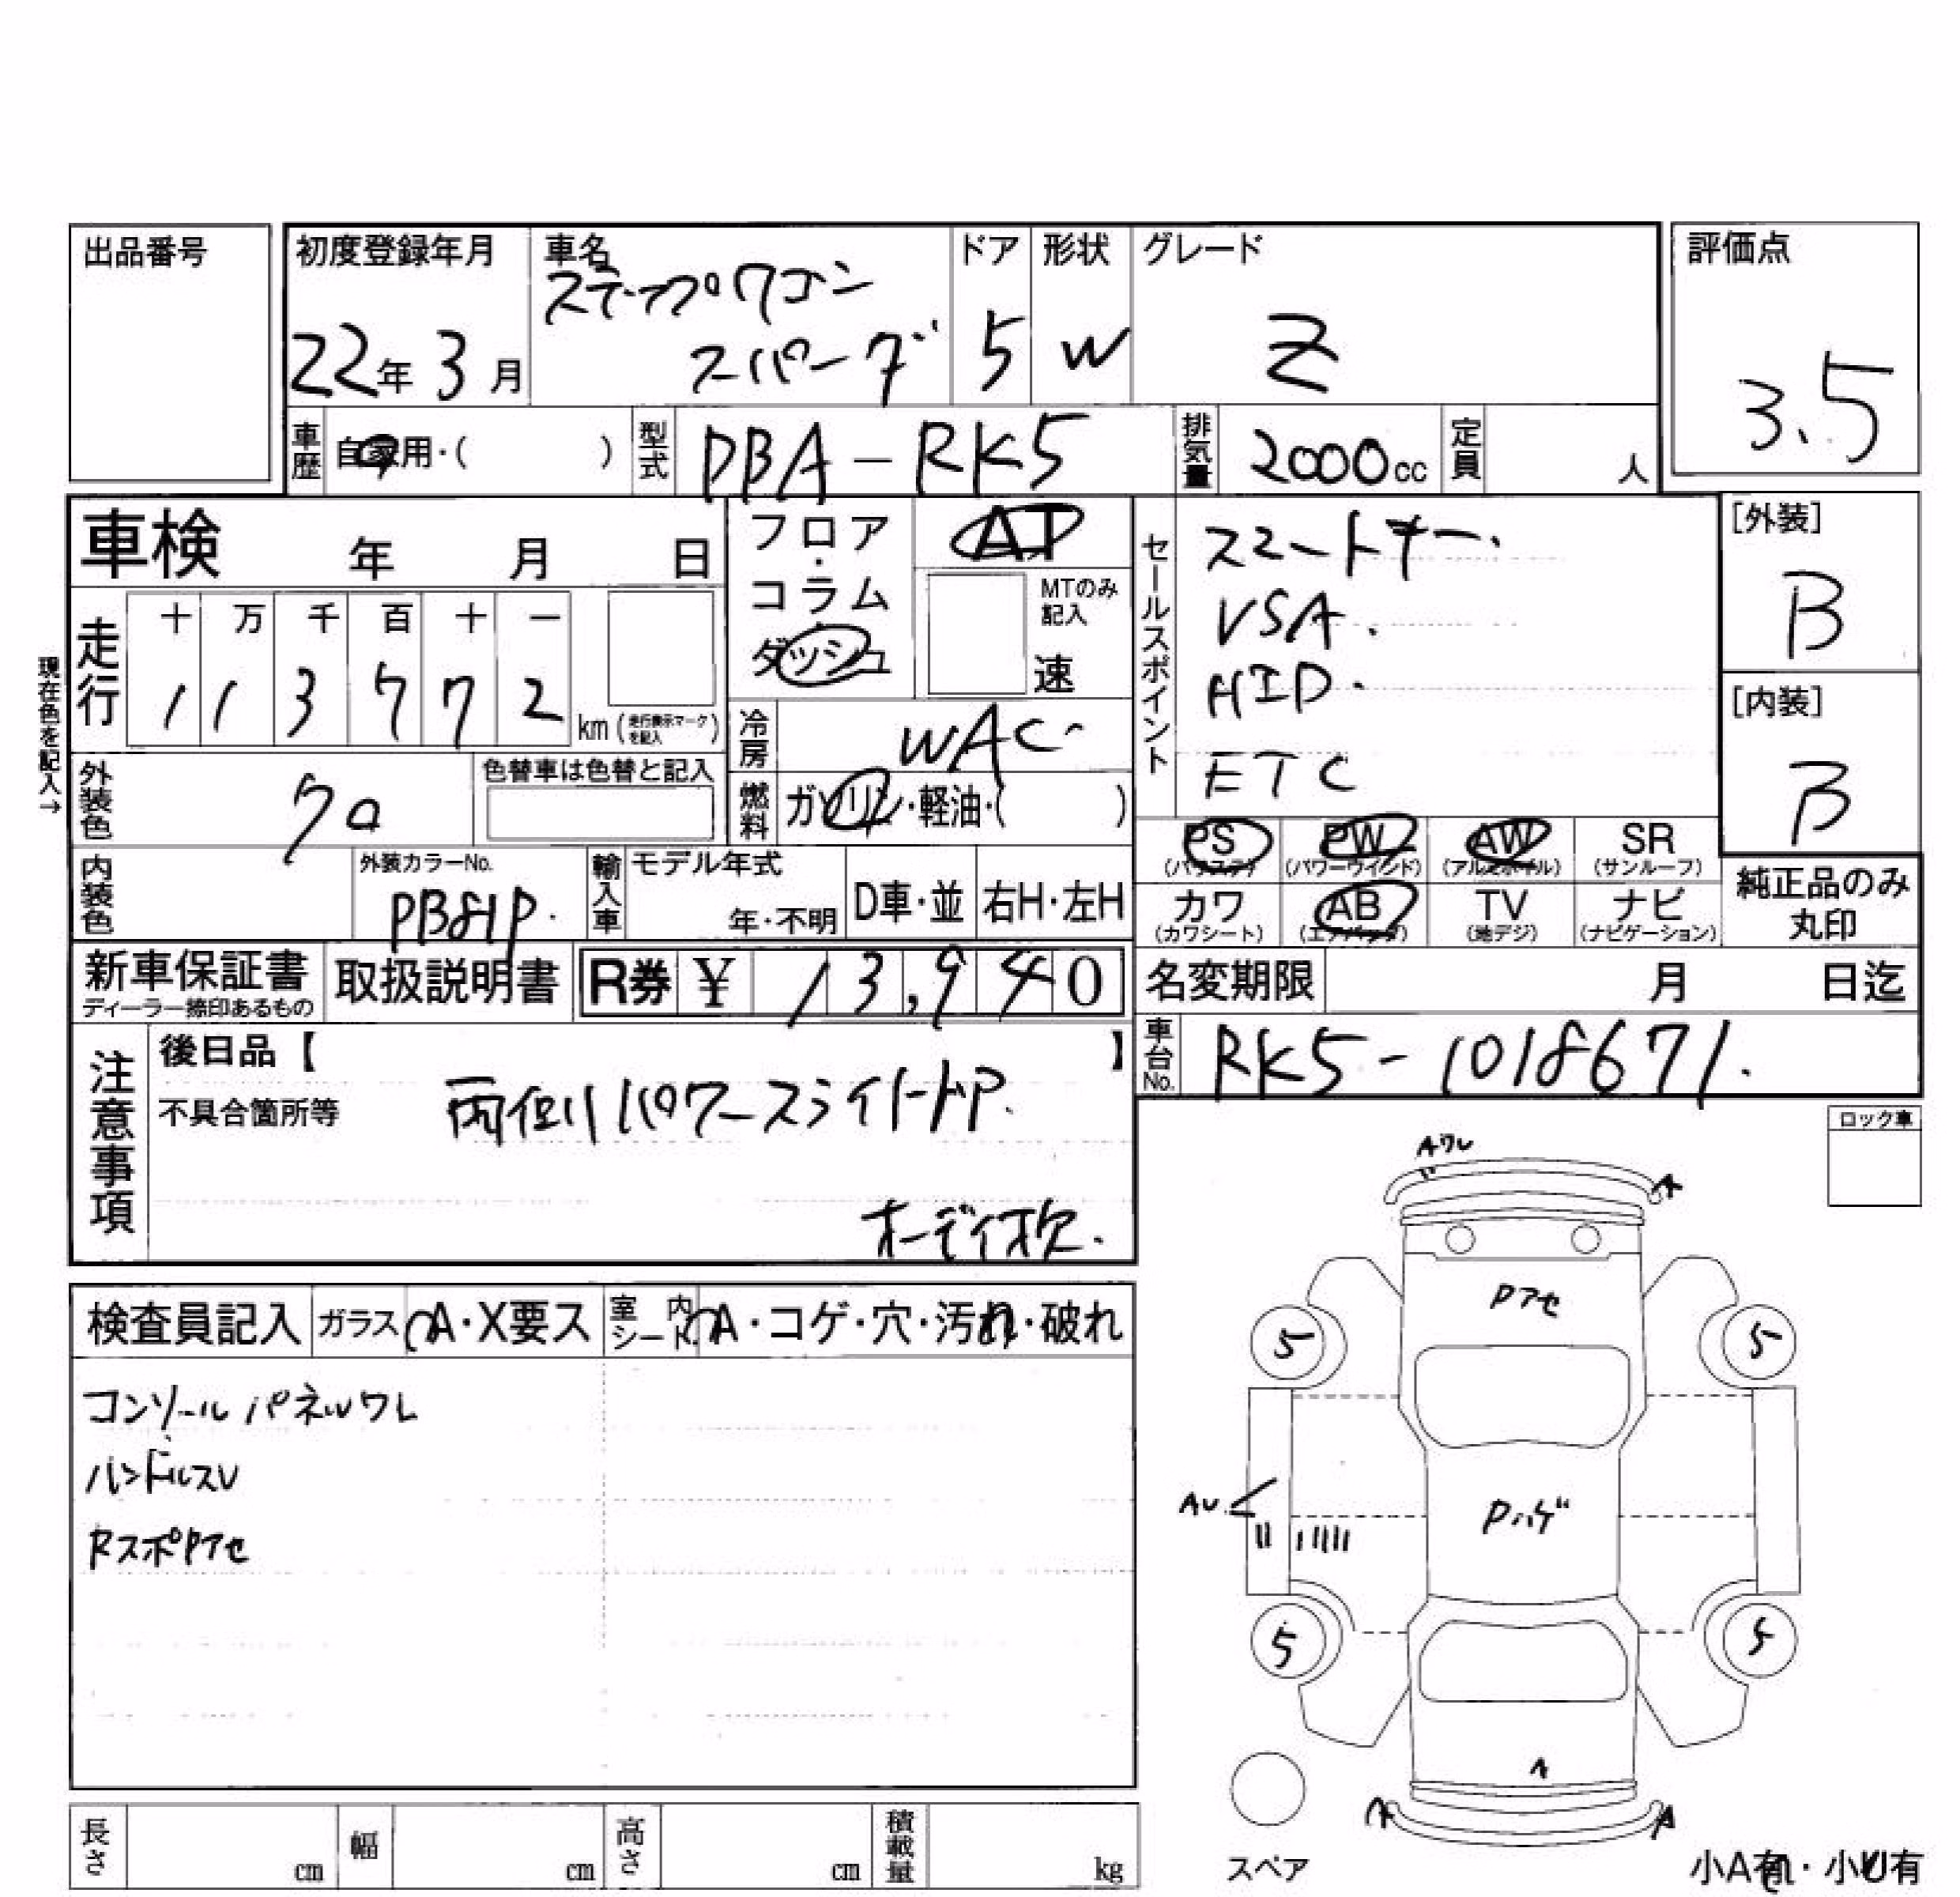 出品番号
初度登録年月 車名 ドア 形状 グレード 評価点
ステップワゴン
22年 3月 スパーダ 5 W Z 3.5
車歴 自家用・( ) 型式 DBA-RK5 排気量 2000cc 定員 人
車検 年 月 日
フロア・コラム・ダッシュ AT
MTのみ記入
速
走行 十 万 千 百 十 一
1 1 3 7 7 2 km (走行表示マークを記入)
現在色を記入→
冷房 WAC
外装色 クロ 色替車は色替と記入
燃料 ガソリン・軽油・( )
内装色 外装カラーNo. PB81P. 輸入車 モデル年式 年・不明 D車・並 右H・左H
セールスポイント
スマートキー.
VSA.
HID.
ETC
[外装]
B
[内装]
B
PS PW AW SR
(パワステ) (パワーウインド) (アルミホイル) (サンルーフ)
カワ AB TV ナビ
(カワシート) (エアバッグ) (地デジ) (ナビゲーション)
純正品のみ丸印
新車保証書 取扱説明書 R券 ¥ 13,940
ディーラー捺印あるもの
名変期限 月 日迄
車台No. RK5-1018671.
注意事項
後日品【 】
不具合箇所等 両側パワースライドドP.
オーディオ欠.
ロック車
検査員記入 ガラス A・X要ス 室内シート A・コゲ・穴・汚れ・破れ
コンソールパネルワレ
ハンドルスレ
RスポPアセ
Aワレ A
Pアセ
5 5
AU
Pハゲ
5 5
A
A A
スペア
小A有・小U有
長さ cm 幅 cm 高さ cm 積載量 kg